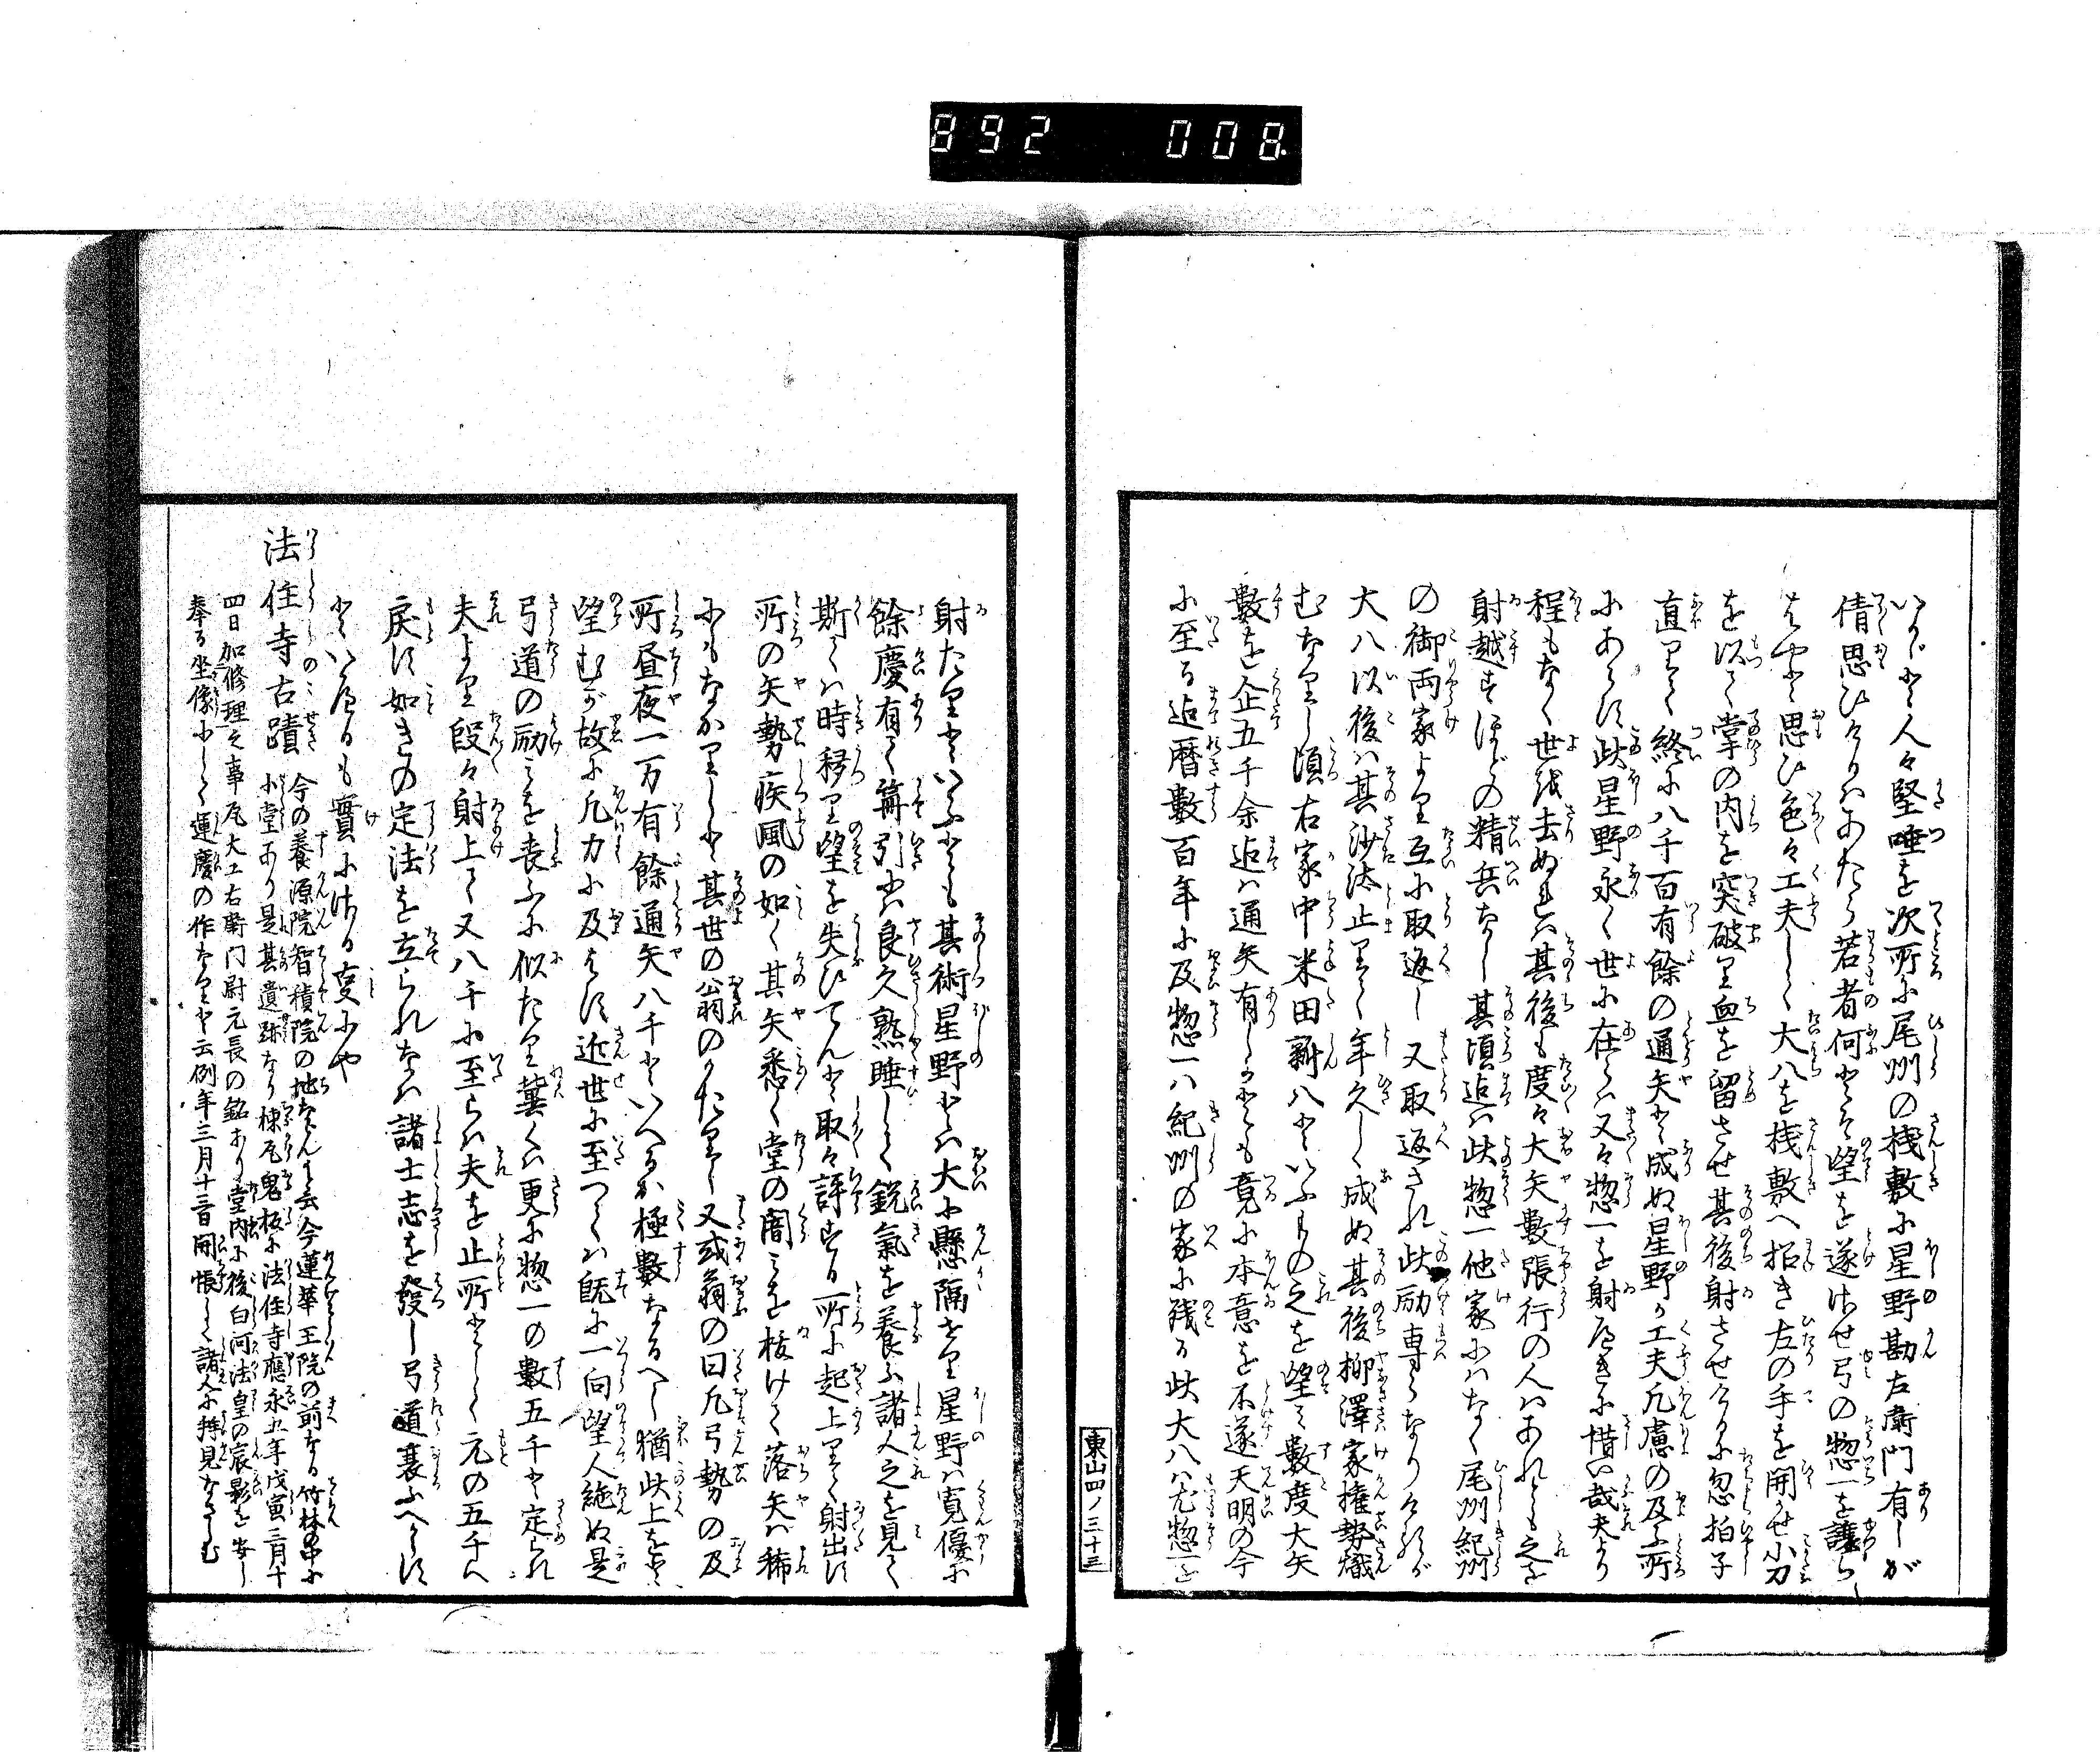 892 008
いかゞと人々堅唾を次所に尾州の棧敷に星野勘左衛門有しが
倩思ひけるハあたら若者何とぞ望を遂させ弓の惣一を讓ら
をやと思ひ色々工夫して大八を棧敷へ招き左の手を開かせ小刀
を以て掌の内を突破り血を留させ其後射させけるに忽拍子
直りて終に八千百有餘の通矢と成ぬ星野が工夫凡慮の及ふ所
にあらす此星野永く世に在らハ又々惣一を射べきに惜い哉夫より
程もなく世を去ぬれハ其後も度々大矢數張行の人ハあれとも之を
射越すほどの精兵なし其頃迄ハ此惣一他家にハなく尾州紀州
の御両家より互に取返し又取返され此励専らなりけるが
大八以後ハ其沙汰止りて年久しく成ぬ其後柳澤家權勢熾
むなりし頃右家中米田新八といふもの之を望て數度大矢
數を企五千余迄ハ通矢有しかとも竟に本意を不遂天明の今
に至る迄暦數百年に及惣一ハ紀州の家に殘る此大八ハ尤惣一を
東山四ノ三十三
射たりといふとも其術星野とハ大に懸隔せり星野ハ寛優に
餘慶有て每引ハ良久熟睡して鋭氣を養ふ諸人之を見て
斯てハ時移り望を失ひてんと取々評する所に起上りて射出す
所の矢勢疾風の如く其矢悉く堂の闇ミを抜けて落矢ハ稀
にもなかりしと其世の公羽のかたりし又或翁の曰凡弓勢の及
所昼夜一万有餘通矢八千といへるか極數なるへし猶此上を
望むが故に凡力に及はす近世に至つてハ既に一向望人絶ぬ是
弓道の励ミを喪ふに似たり冀くハ更に惣一の數五千と定られ
夫より段々射上て又八千に至らハ夫を止所として元の五千へ
戻す如きの定法を立られなハ諸士志を發し弓道衰ふへからす
といへるも實に味る事にや
法住寺古蹟 今の養源院智積院の地なんと云今蓮華王院の前なる竹林の中に
小堂あり是其遺跡なり棟瓦鬼板に法住寺應永五年戊寅三月十
四日加修理之事瓦大工右衛門尉元長の銘あり堂内に後白河法皇の宸影を安し
奉る坐像にして運慶の作なりと云例年三月十三日開帳して諸人に拝見なさしむ